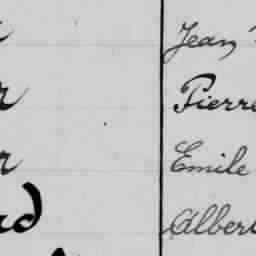 Jean
r Pierre
r Emile
rd Albert